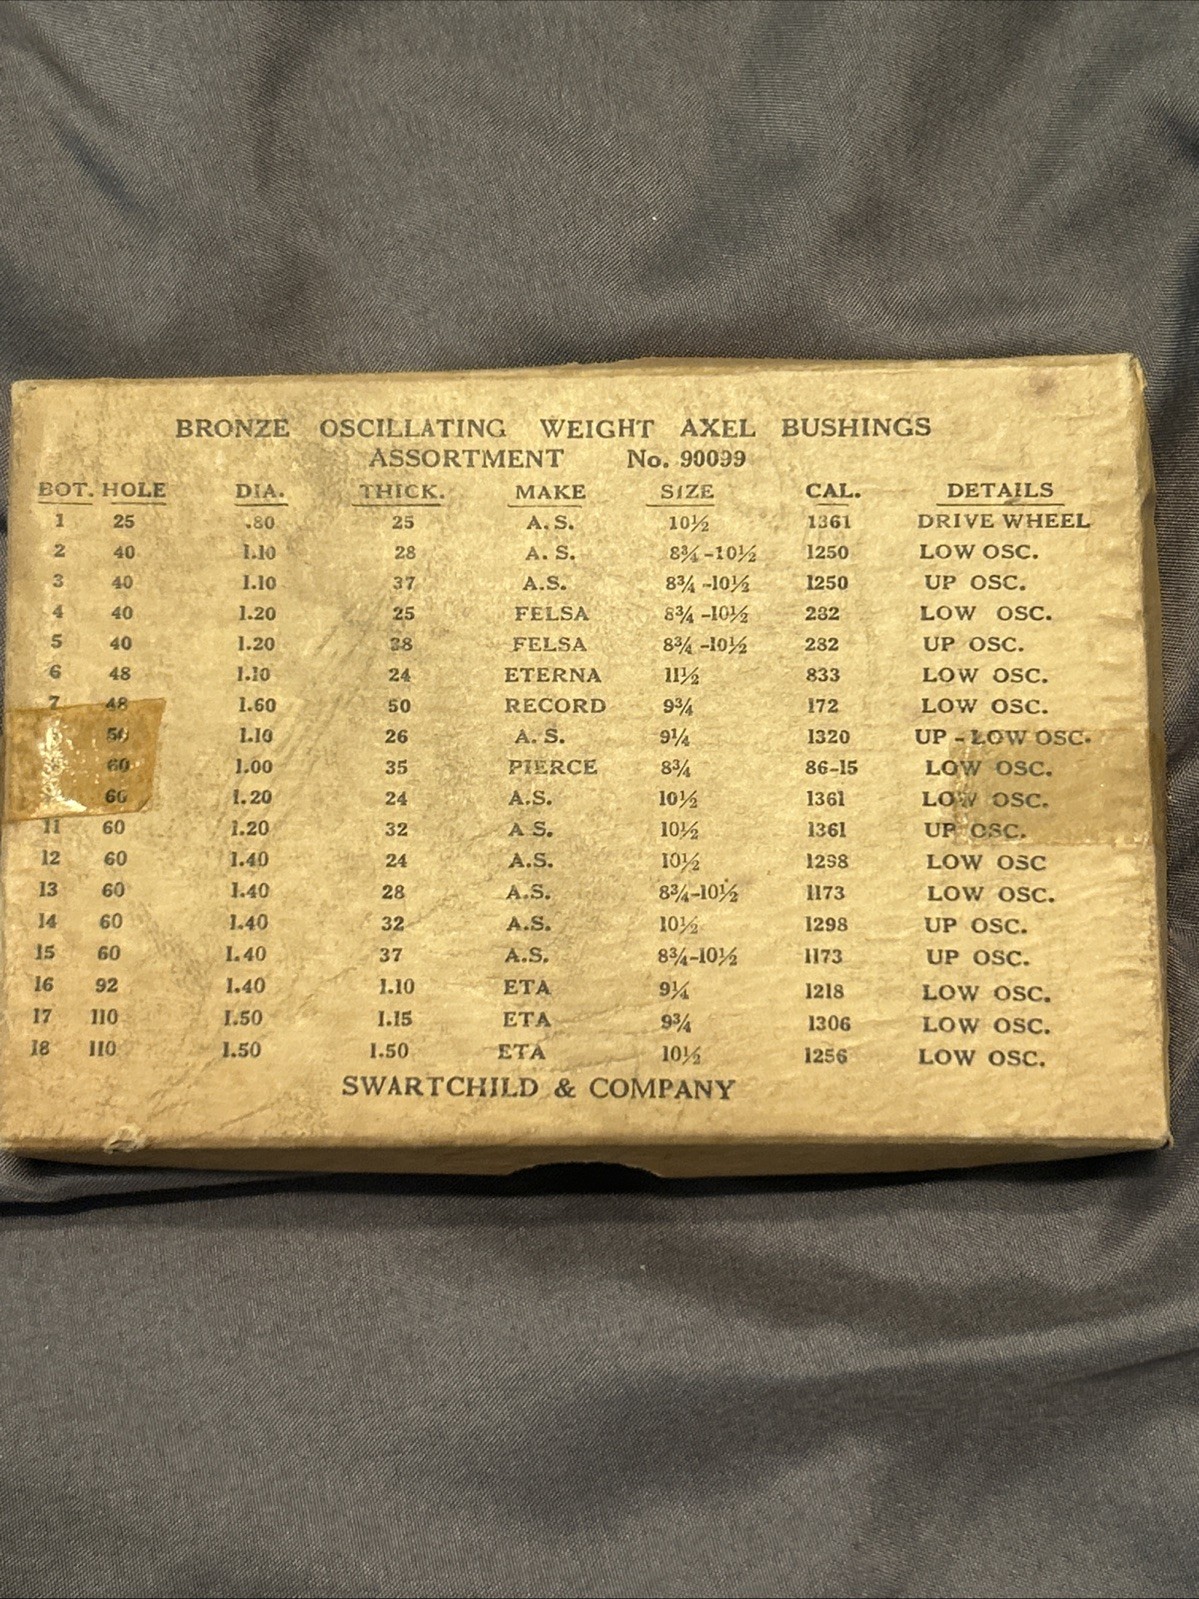 BRONZE OSCILLATING WEIGHT AXEL BUSHINGS
ASSORTMENT No. 90099
BOT. HOLE DIA. THICK. MAKE SIZE CAL. DETAILS
1 25 .80 25 A. S. 10½ 1361 DRIVE WHEEL
2 40 1.10 28 A. S. 8¾-10½ 1250 LOW OSC.
3 40 1.10 37 A.S. 8¾-10½ 1250 UP OSC.
4 40 1.20 25 FELSA 8¾-10½ 282 LOW OSC.
5 40 1.20 38 FELSA 8¾-10½ 282 UP OSC.
6 48 1.10 24 ETERNA 11½ 833 LOW OSC.
7 48 1.60 50 RECORD 9¾ 172 LOW OSC.
50 1.10 26 A. S. 9¼ 1320 UP - LOW OSC.
60 1.00 35 PIERCE 8¾ 86-15 LOW OSC.
60 1.20 24 A.S. 10½ 1361 LOW OSC.
11 60 1.20 32 A S. 10½ 1361 UP OSC.
12 60 1.40 24 A.S. 10½ 1298 LOW OSC
13 60 1.40 28 A.S. 8¾-10½ 1173 LOW OSC.
14 60 1.40 32 A.S. 10½ 1298 UP OSC.
15 60 1.40 37 A.S. 8¾-10½ 1173 UP OSC.
16 92 1.40 1.10 ETA 9¼ 1218 LOW OSC.
17 110 1.50 1.15 ETA 9¾ 1306 LOW OSC.
18 110 1.50 1.50 ETA 10½ 1256 LOW OSC.
SWARTCHILD & COMPANY